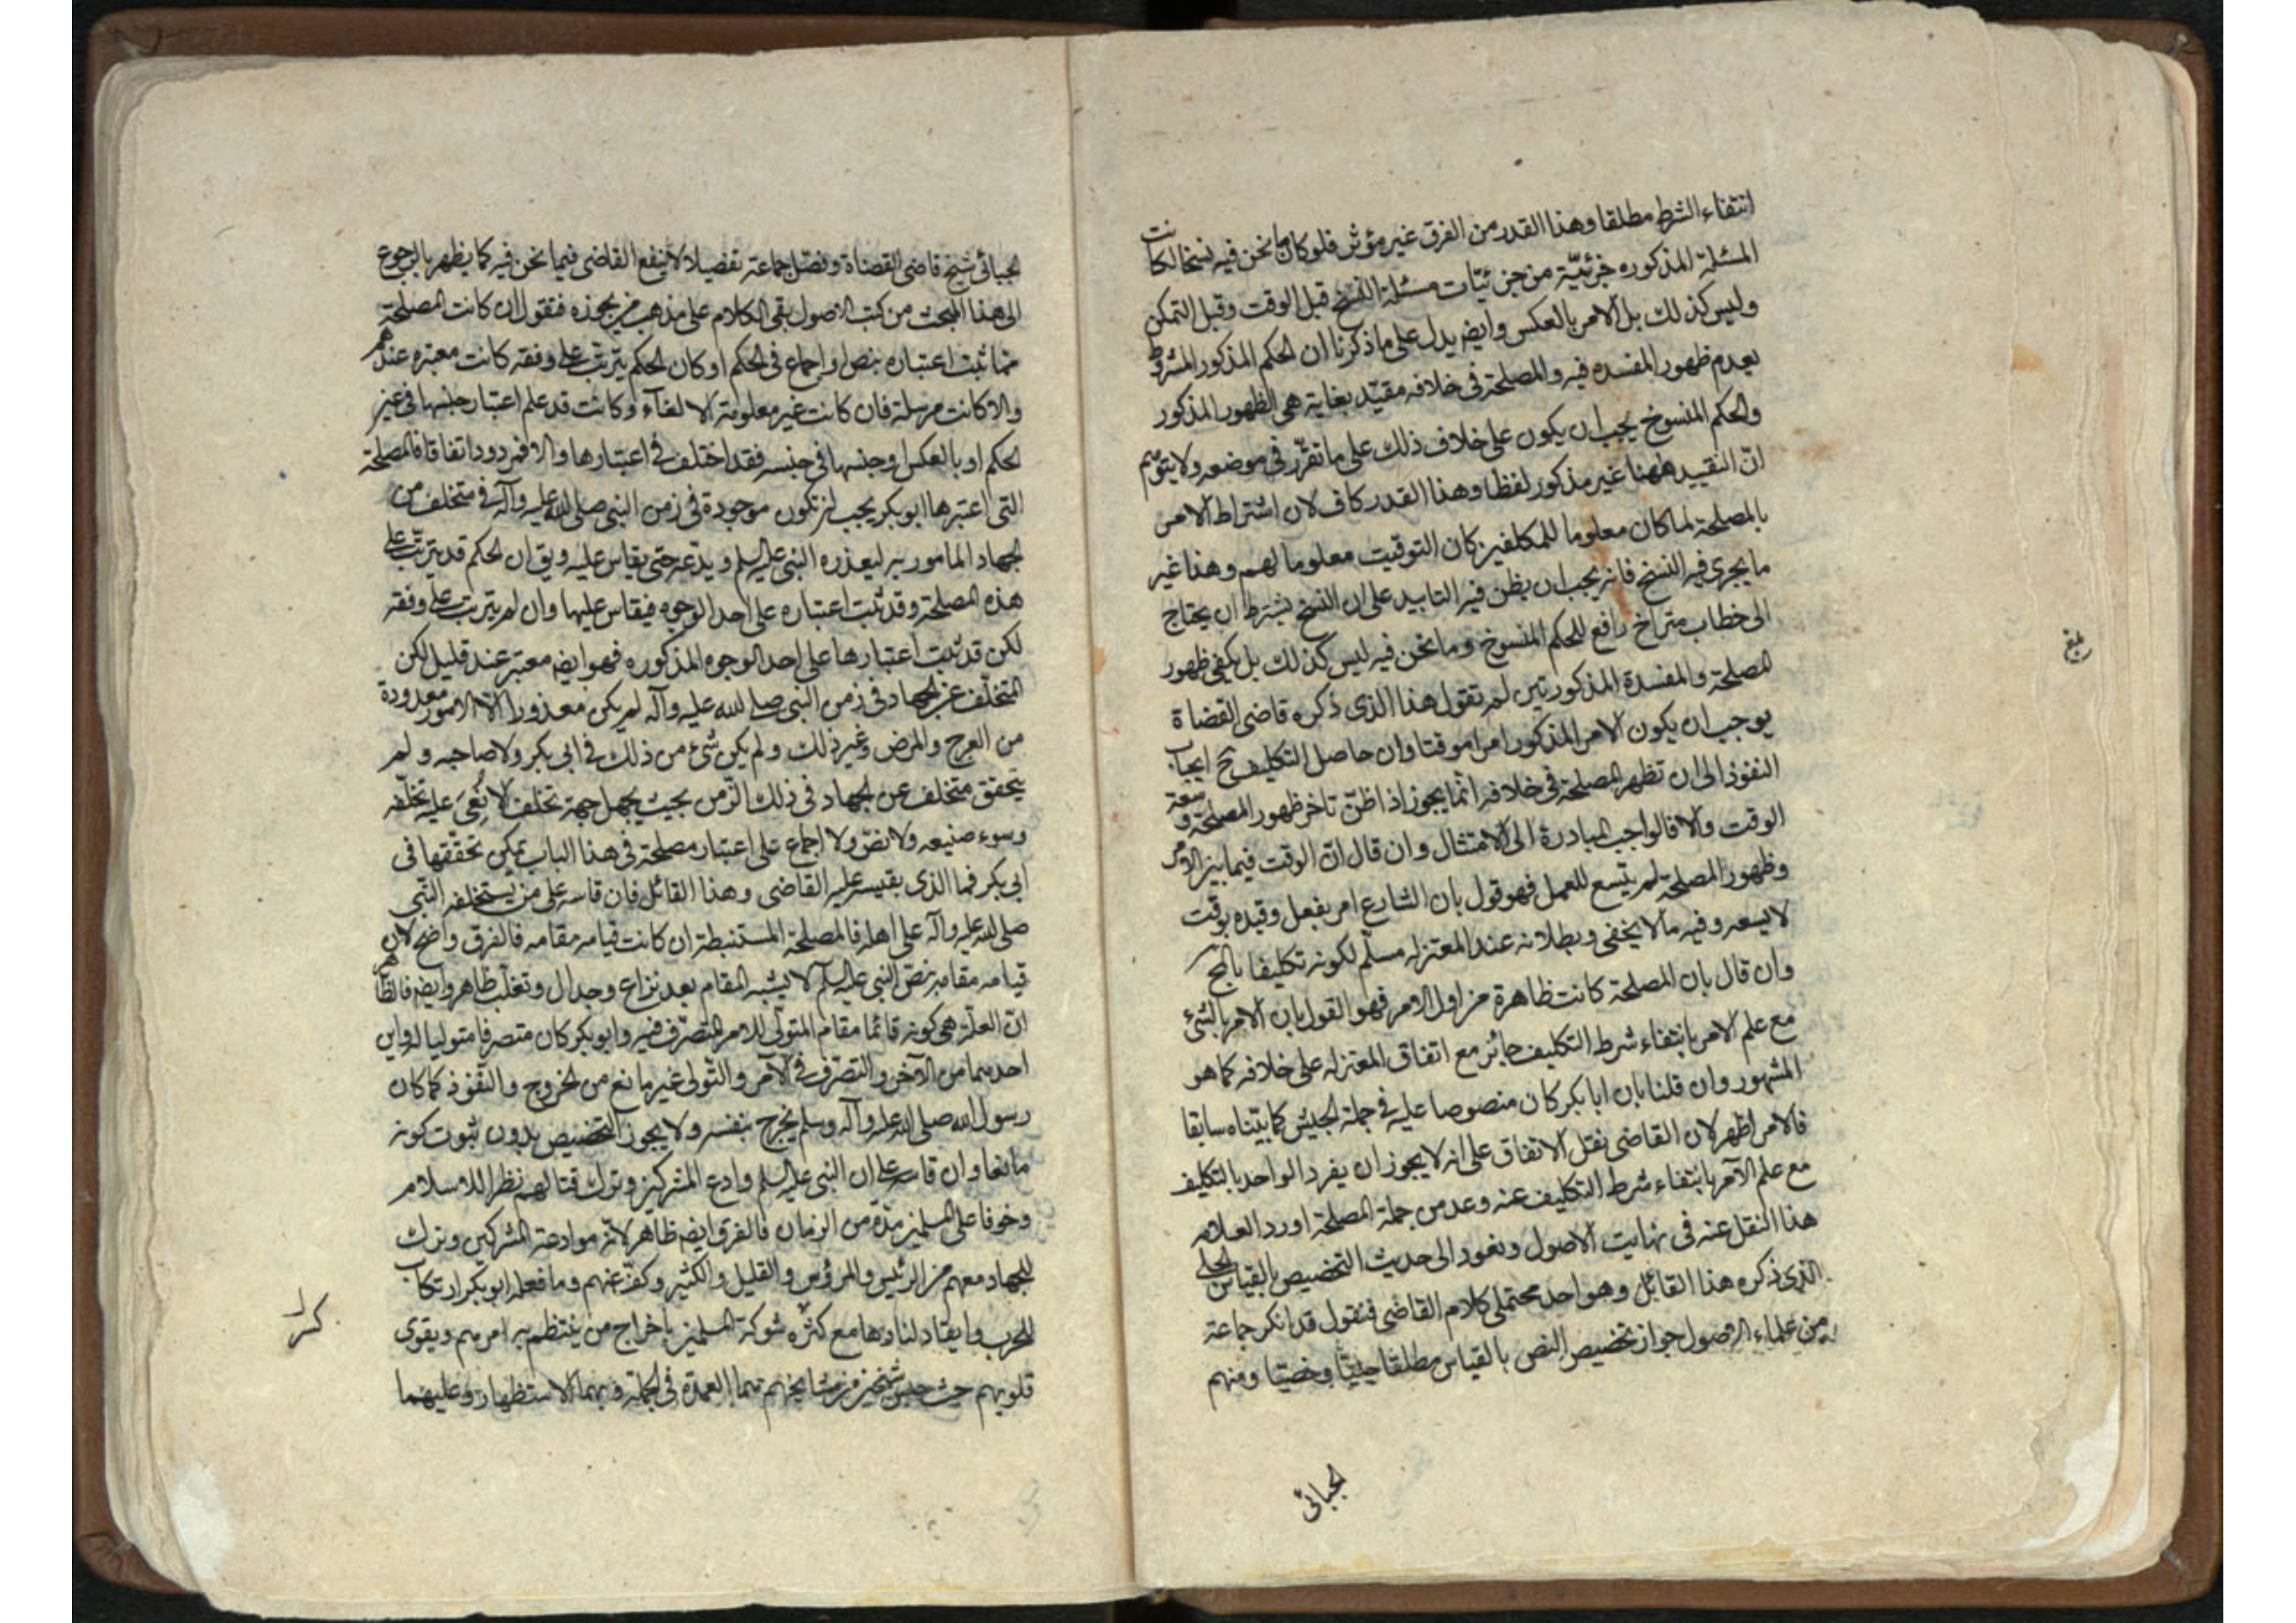 انتفاء الشرط مطلقا وهذا القدر من الفرق غير مؤثر فلو كان ما نحن فيه نسخا لكانت
المسئلة المذكوره جزئيّة من جزئيّات مسئلة النسخ قبل الوقت وقبل التمكن
وليس كذلك بل الامر بالعكس وايضا يدل على ما ذكرنا ان الحكم المذكور المشروط
بعدم ظهور المفسده فيه والمصلحة فى خلافه مقيّد بغاية هى الظهور المذكور
والحكم المنسوخ يجب ان يكون على خلاف ذلك على ما تقرّر فى موضعه ولا يتوهم
انّ التقييد ههنا غير مذكور لفظا وهذا القدر كاف لان اشتراط الامر
بالمصلحة لما كان معلوما للمكلفين كان التوقيت معلوما لهم وهذا غير
ما يجرى فيه النسخ فانه يجب ان يظن فيه التابيد على ان النسخ يشترط ان يحتاج
الى خطاب متراخ رافع للحكم المنسوخ وما نحن فيه ليس كذلك بل يكفى ظهور
المصلحة والمفسدة المذكورتين لم نقول هذا الذى ذكره قاضى القضاة
يوجب ان يكون الامر المذكور امرا موقتا وان حاصل التكليف ح ايجاب
النفوذ الى ان تظهر المصلحة فى خلافه انما يجوز اذا ظنّ تاخر ظهور المصلحة وسعة
الوقت والا فالواجب المبادرة الى الامتثال وان قال انّ الوقت فيما بين الامر
وظهور المصلحة لم يتسع للعمل فهو قول بان الشارع امر بفعل وقيده بوقت
لا يسعه وفيه ما لا يخفى وبطلانه عند المعتزله مسلّم لكونه تكليفا بالمح
وان قال بان المصلحة كانت ظاهرة من اول الامر فهو القول بان الامر بالشئ
مع علم الآمر بانتفاء شرط التكليف جائز مع اتفاق المعتزله على خلافه كما هو
المشهور وان قلنا بان ابا بكر كان منصوصا عليه فى جملة الجيش كما بيّناه سابقا
فالامر اظهر لان القاضى نقل الاتفاق على انه لا يجوز ان يفرد الواحد بالتكليف
مع علم الآمر بانتفاء شرط التكليف عنه وعد من جملة المصلحة اورد العلامه
هذا النقل عنه فى نهايت الاصول ونعود الى حديث التخصيص بالقياس الجلى
الذى ذكره هذا القائل وهو احد محتملى كلام القاضى فنقول قد انكر جماعة
من علماء الاصول جواز تخصيص النص بالقياس مطلقا جليّا وخفيّا ومنهم
الجبائى
الجبائى شيخ قاضى القضاة وفصّل جماعة تفصيلا لا ينفع القاضى فيما نحن فيه كما يظهر بالرجوع
الى هذا المبحث من كتب الاصول بقى الكلام على مذهب من يجوزه فنقول ان كانت المصلحة
مما ثبت اعتباره بنص او اجماع فى الحكم او كان الحكم يترتب على وفقه كانت معتبره عندهم
والا كانت مرسلة فان كانت غير معلومة الالغاء وكانت قد علم اعتبار جنسها فى عين
الحكم او بالعكس او جنسها فى جنسه فقد اختلف فى اعتبارها والا فمردود اتفاقا فالمصلحة
التى اعتبرها ابو بكر يجب ان تكون موجودة فى زمن النبى صلى الله عليه وآله فى متخلف من
الجهاد المامور به ليعذره النبى عليه السلم ويدعه حتى يقاس عليه ويق ان الحكم قد يترتب على
هذه المصلحة وقد ثبت اعتباره على احد الوجوه فيقاس عليها وان لم يترتب على وفقه
لكن قد ثبت اعتبارها على احد الوجوه المذكوره فهو ايضا معتبر عند قليل لكن
المتخلف عن الجهاد فى زمن النبى صلى الله عليه وآله لم يكن معذورا الا لامور معدودة
من العرج والمرض وغير ذلك ولم يكن شئ من ذلك فى ابى بكر ولا صاحبه ولم
يتحقق متخلف عن الجهاد فى ذلك الزمن بحيث يجهل جهة تخلف لا نعى عليه تخلّفه
وسوء صنيعه ولا نصّ ولا اجماع على اعتبار مصلحة فى هذا الباب يمكن تحققها فى
ابى بكر فما الذى يقيسه عليه القاضى وهذا القائل فان قاسه على من يستخلفه النبى
صلى الله عليه وآله على اهله فالمصلحة المستنبطة ان كانت قيامه مقامه فالفرق واضح لان
قيامه مقامه بنصّ النبى عليه السلم لا يشبه المقام بعد نزاع وجدال وتغلّب ظاهر وايضا فالظاهر
انّ العلّة هى كونه قائما مقام المتولّى للامر المتصرّف فيه وابو بكر كان متصرفا متوليا
احدهما من الآخر والتصرّف فى الامر والتولى غير مانع من الخروج والنفوذ كما كان
رسول الله صلى الله عليه وآله وسلم يخرج بنفسه ولا يجوز التخصيص بدون ثبوت كونه
مانعا وان قاسه على ان النبى عليه السلم وادع المشركين وترك قتالهم نظرا للاسلام
وخوفا على المسلمين مدّة من الزمان فالفرق ايضا ظاهر لانّه موادعة المشركين وترك
للجهاد معهم من الرئيس والمرؤس والقليل والكثير وكفّ عنهم وما فعله ابو بكر ارتكاب
للحرب وايقاد لنارها مع كثره شوكة المسلمين باخراج من ينتظم به امرهم ويقوى
قلوبهم حيث حبس شخصين من مشايخهم هما العمدة فى الجملة وبهما الاستظهار وعليهما